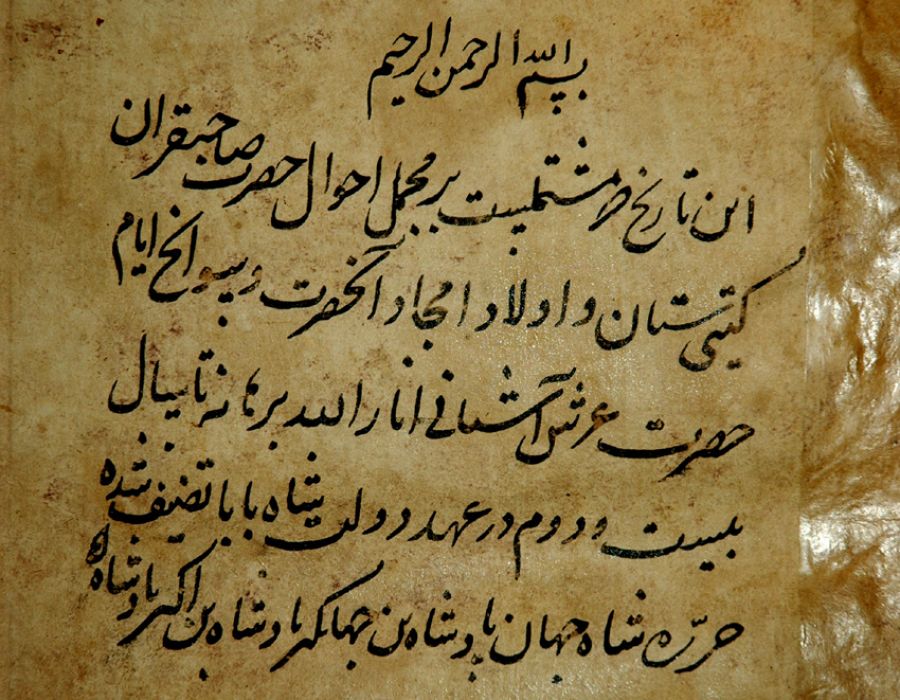 بسم الله الرحمن الرحیم
این تاریخ که مشتملست بر مجمل احوال حضرت صاحبقران
گیتی ستان و اولاد امجاد آنحضرت و سوانح ایام
حضرت عرش آشیانی انار الله برهانه تا سال
بیست و دوم در عهد دولت شاه بابا تصنیف شده
حرره شاه جهان پادشاه بن جهانگیر پادشاه بن اکبر پادشاه